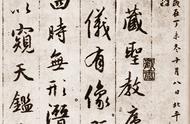 在丁未冬十月八日北平
藏聖教序
儀有像
四時無形潛
以窺天鑑